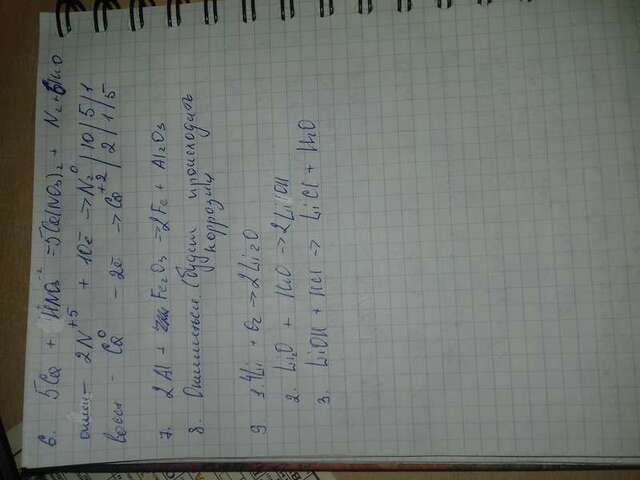 6. 5Ca + HNO₃ = 5Ca(NO₃)₂ + N₂ + 6H₂O
2N⁺⁵ + 10e̅ → N₂⁰ | 10 | 5 | 1
Ca⁰ - 2e̅ → Ca⁺² | 2 | 1 | 5
7. 2Al + Fe₂O₃ → 2Fe + Al₂O₃
8. (будет происходить
коррозия
9 1. 4Li + O₂ → 2Li₂O
2. Li₂O + H₂O → 2LiOH
3. LiOH + HCl → LiCl + H₂O